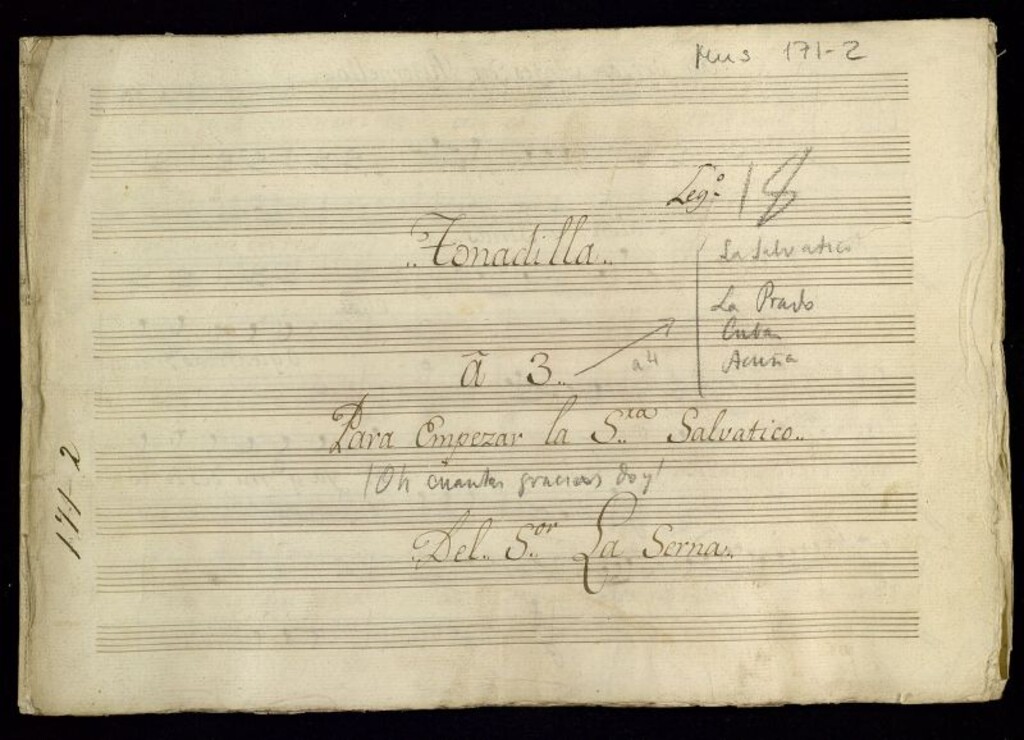 Mus 171-2
Leg.º 18
.. Tonadilla ..
La Salvatico
La Prado
Cuba
Acuña
â 3 ..
a 4
Para Empezar la S.ra Salvatico ..
¡Oh cuantas gracias doy!
.. Del .. S.or La Serna ..
171-2